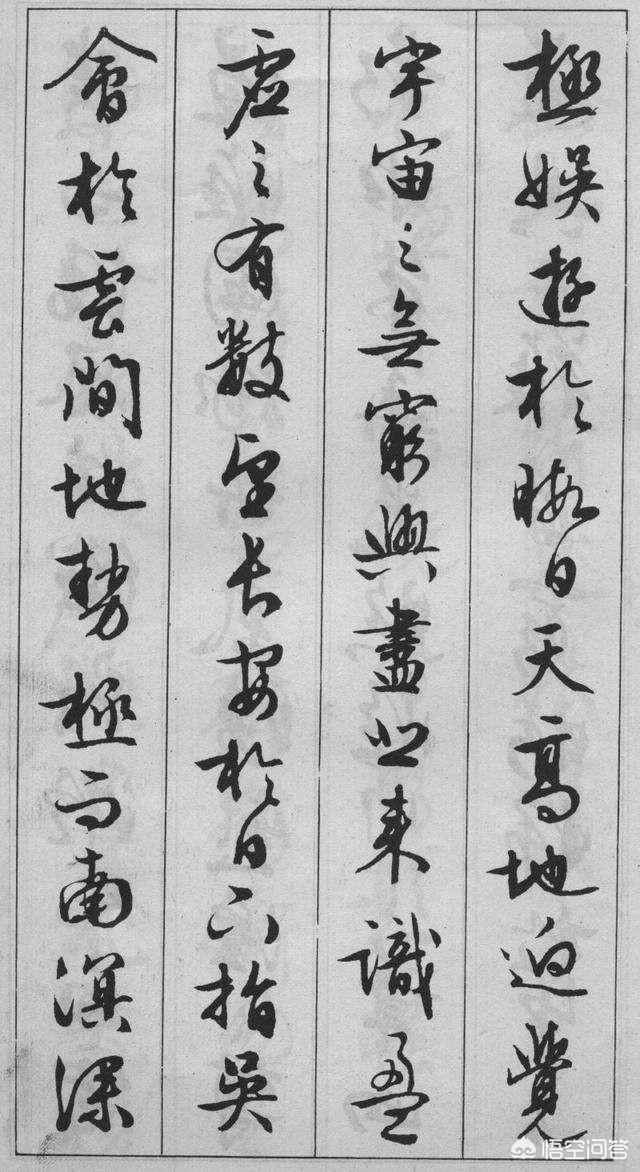 極娛遊於暇日天高地逈覺
宇宙之無窮興盡悲來識盈
虛之有數望長安於日下指吳
會於雲間地勢極而南溟深
悟空问答